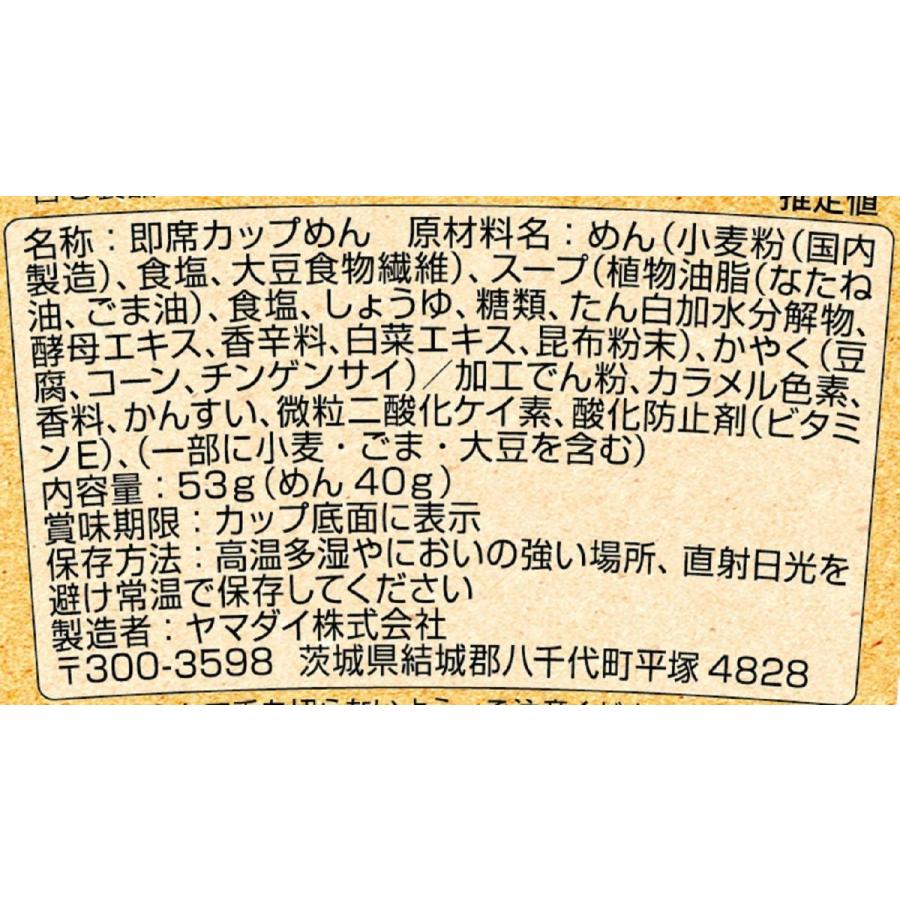 推定値
名称：即席カップめん　原材料名：めん(小麦粉(国内
製造)、食塩、大豆食物繊維)、スープ(植物油脂(なたね
油、ごま油)、食塩、しょうゆ、糖類、たん白加水分解物、
酵母エキス、香辛料、白菜エキス、昆布粉末)、かやく(豆
腐、コーン、チンゲンサイ)／加工でん粉、カラメル色素、
香料、かんすい、微粒二酸化ケイ素、酸化防止剤(ビタミ
ンE)、(一部に小麦・ごま・大豆を含む)
内容量：53g(めん 40g)
賞味期限：カップ底面に表示
保存方法：高温多湿やにおいの強い場所、直射日光を
避け常温で保存してください
製造者：ヤマダイ株式会社
〒300-3598　茨城県結城郡八千代町平塚 4828